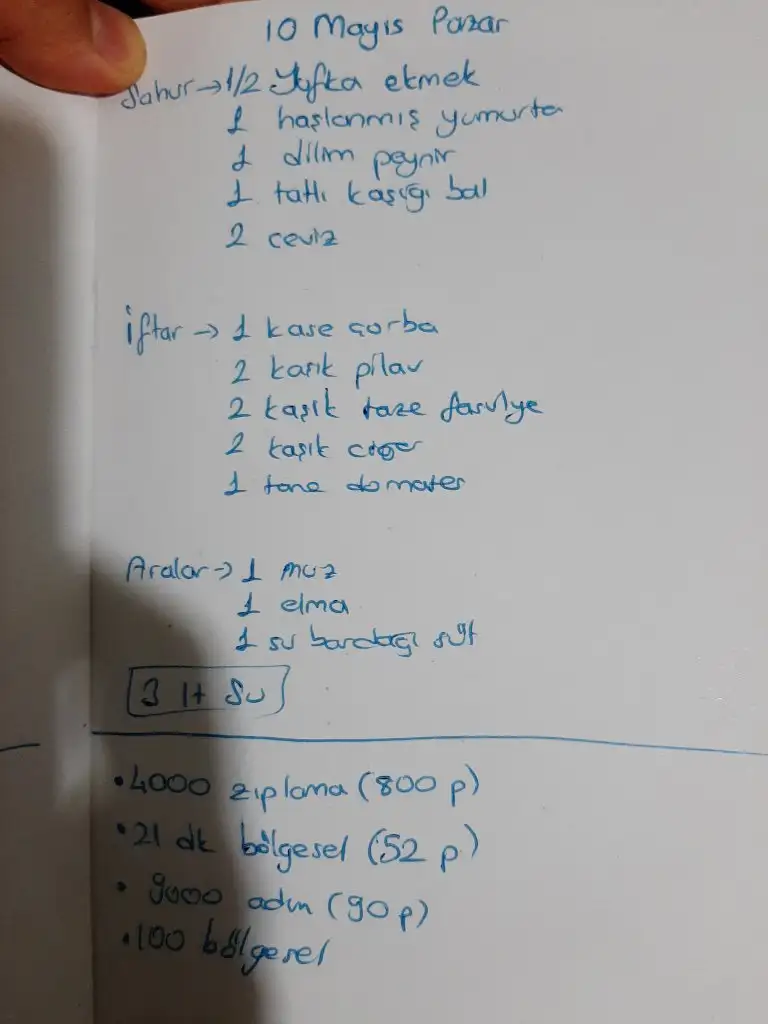 10 Mayıs Pazar
Sahur → 1/2 Yufka ekmek
1 haşlanmış yumurta
1 dilim peynir
1 tatlı kaşığı bal
2 ceviz
İftar → 1 kase çorba
2 kaşık pilav
2 kaşık taze fasulye
2 kaşık ciğer
1 tane domates
Aralar → 1 muz
1 elma
1 su bardağı süt
3 lt su
• 4000 zıplama (800 p)
• 21 dk bölgesel (52 p)
• 9000 adım (90 p)
• 100 bölgesel